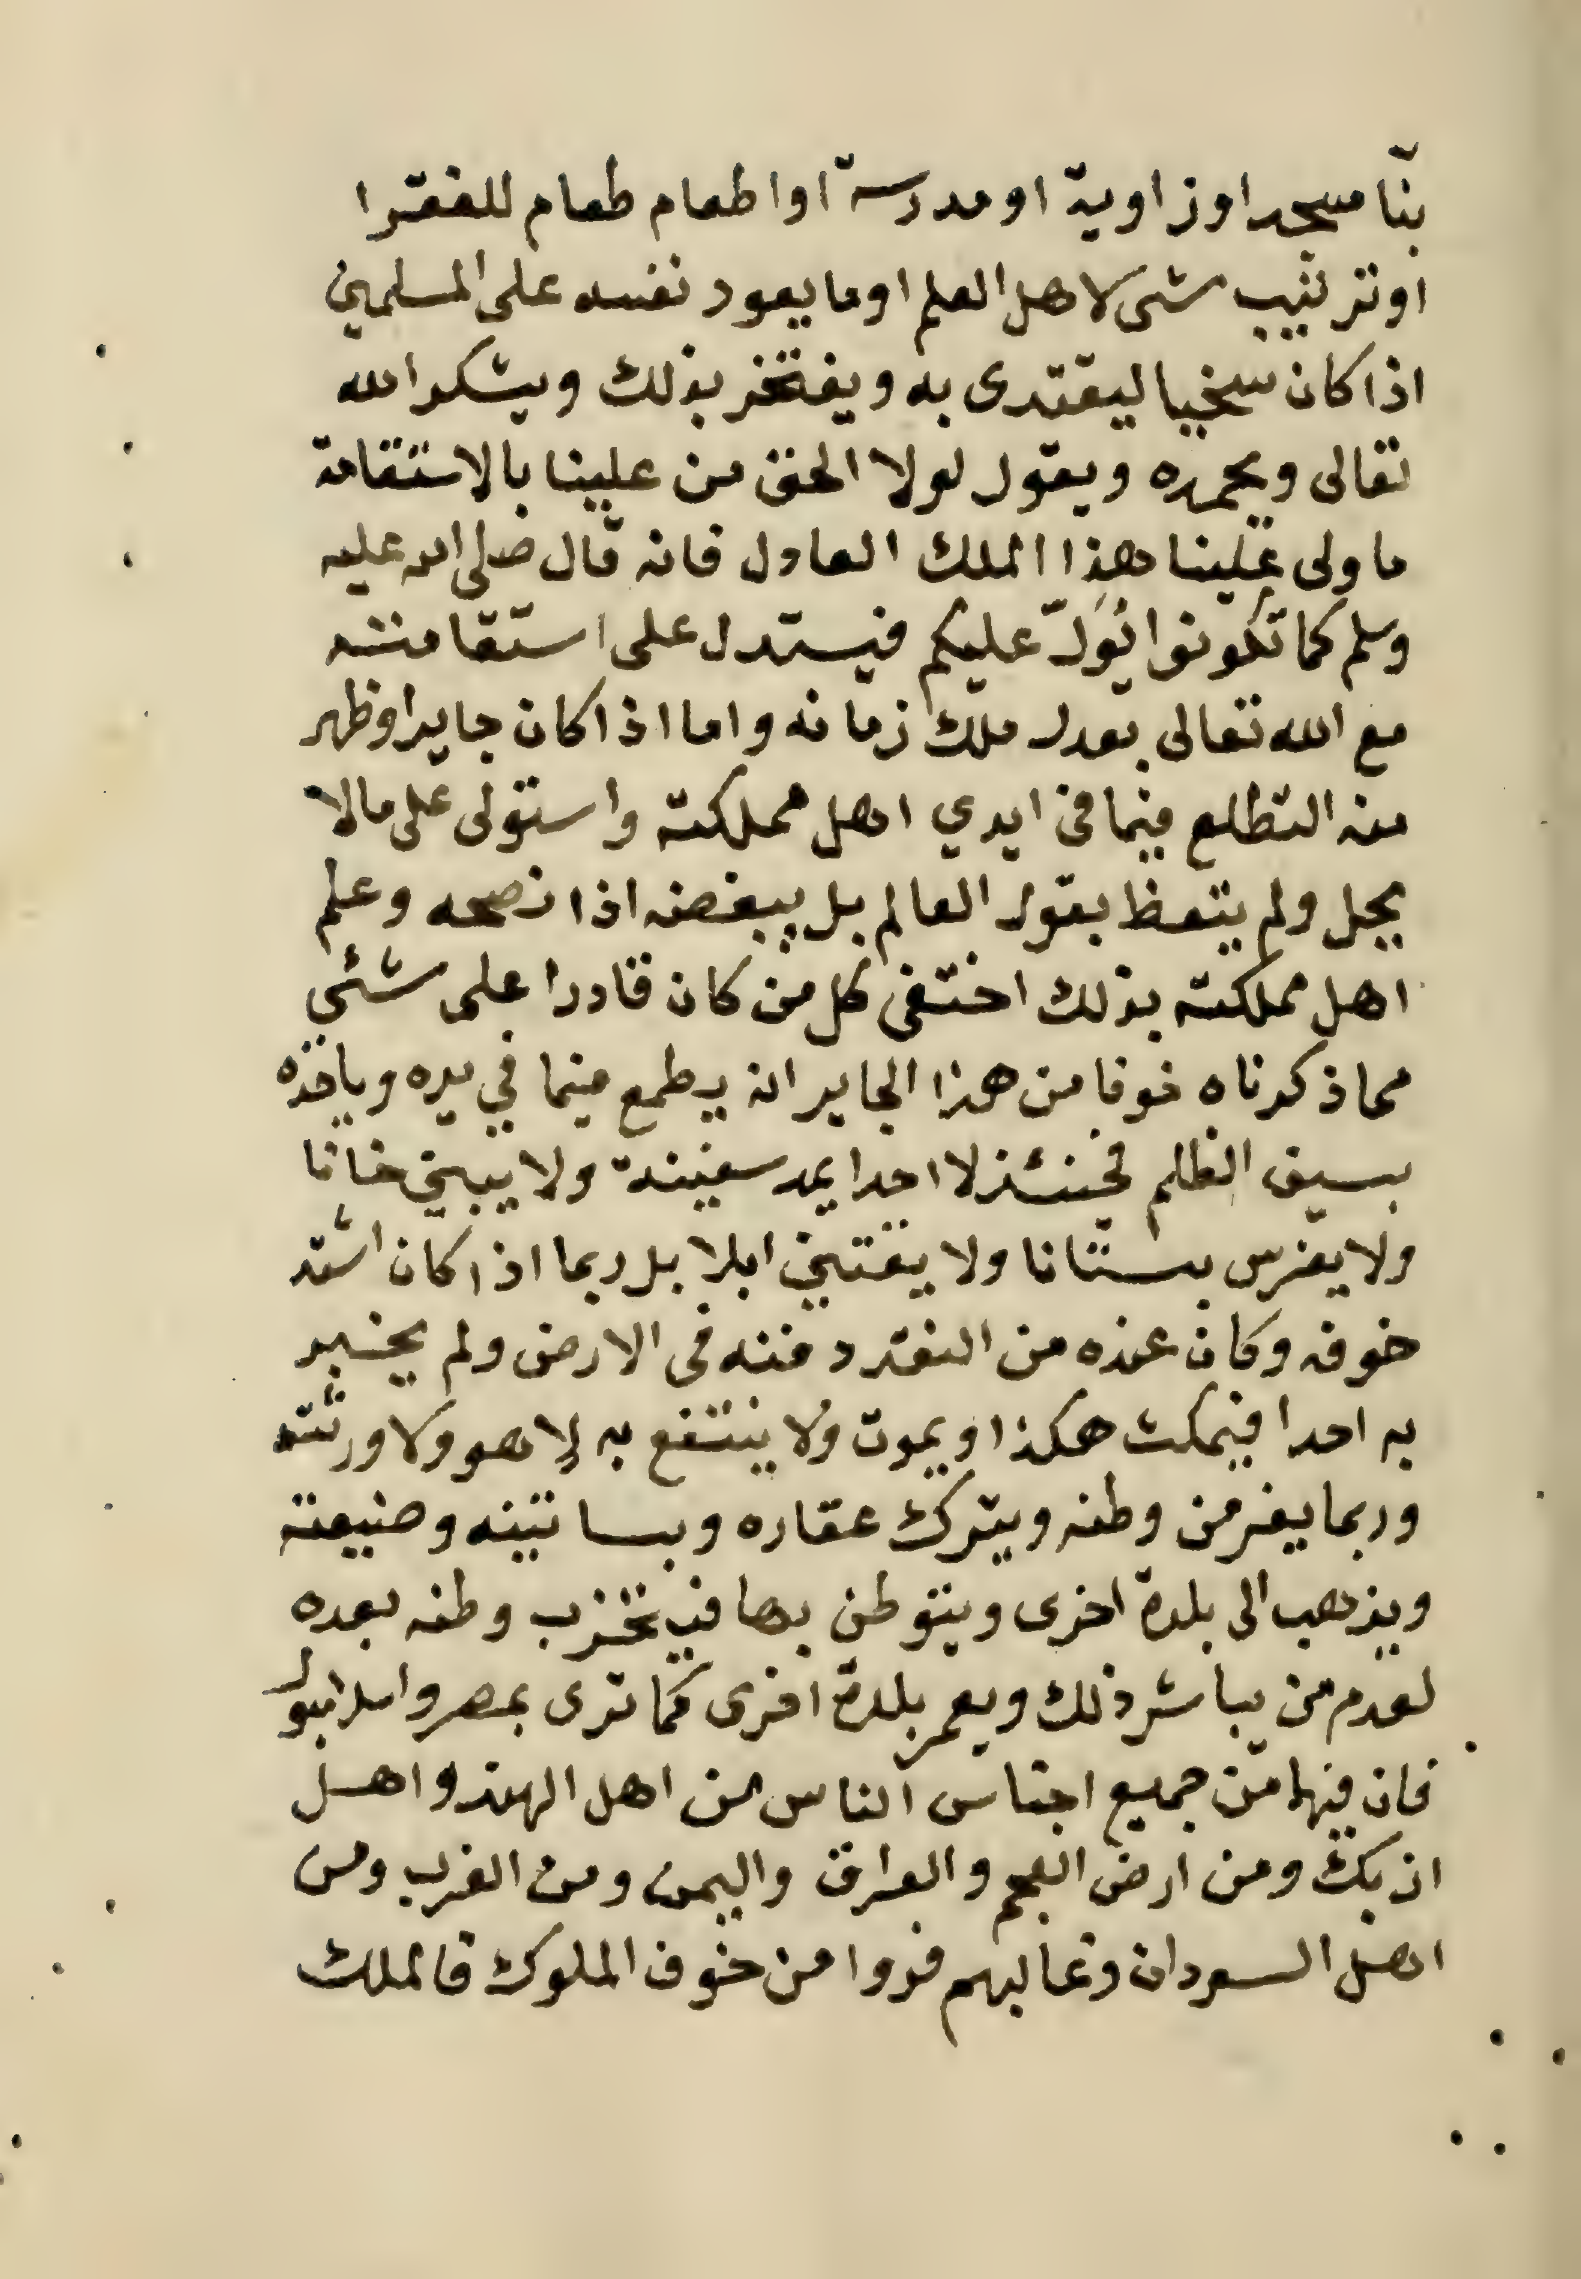 بنا مسجد او زاوية او مدرسة او اطعام طعام للفقرا
او ترتيب شى لاهل العلم او ما يعود نفعه على المسلمين
اذا كان سخيا ليقتدى به ويفتخر بذلك ويشكر الله
تعالى ويحمده ويقول لولا الحق من علينا بالاستقامة
ما ولى علينا هذا الملك العادل فانه قال صلى الله عليه
وسلم كما تكونوا يُوَلّ عليكم فيستدل على استقامته
مع الله تعالى بعدل ملك زمانه واما اذا كان جايرا وظهر
منه التطلع فيما فى ايدي اهل مملكته واستولى على مالا
يحل ولم يتعظ بقول العالم بل يبغضه اذا نصحه وعلم
اهل مملكته بذلك اختفى كل من كان قادرا على شئي
مما ذكرناه خوفا من هذا الجاير انه يطمع فيما في يده وياخذه
بسيف الظلم فحينئذ لا احدا يمد سفينة ولا يبني خانا
ولا يغرس بستانا ولا يقتني ابلا بل ربما اذا كان اشتد
خوفه وكان عنده من النقد دفنه فى الارض ولم يخبر
به احدا فيمكث هكذا ويموت ولا ينتفع به لا هو ولا ورثته
وربما يفر من وطنه ويترك عقاره وبساتينه وضيعته
ويذهب الى بلدة اخرى ويتوطن بها فيخرب وطنه بعده
لعدم من يباشر ذلك ويعمر بلدة اخرى كما ترى بمصر واسلامبول
فان فيها من جميع اجناس الناس من اهل الهند واهل
ازبك ومن ارض العجم والعراق واليمن ومن الغرب ومن
اهل السودان وغالبهم فروا من خوف الملوك فالملك